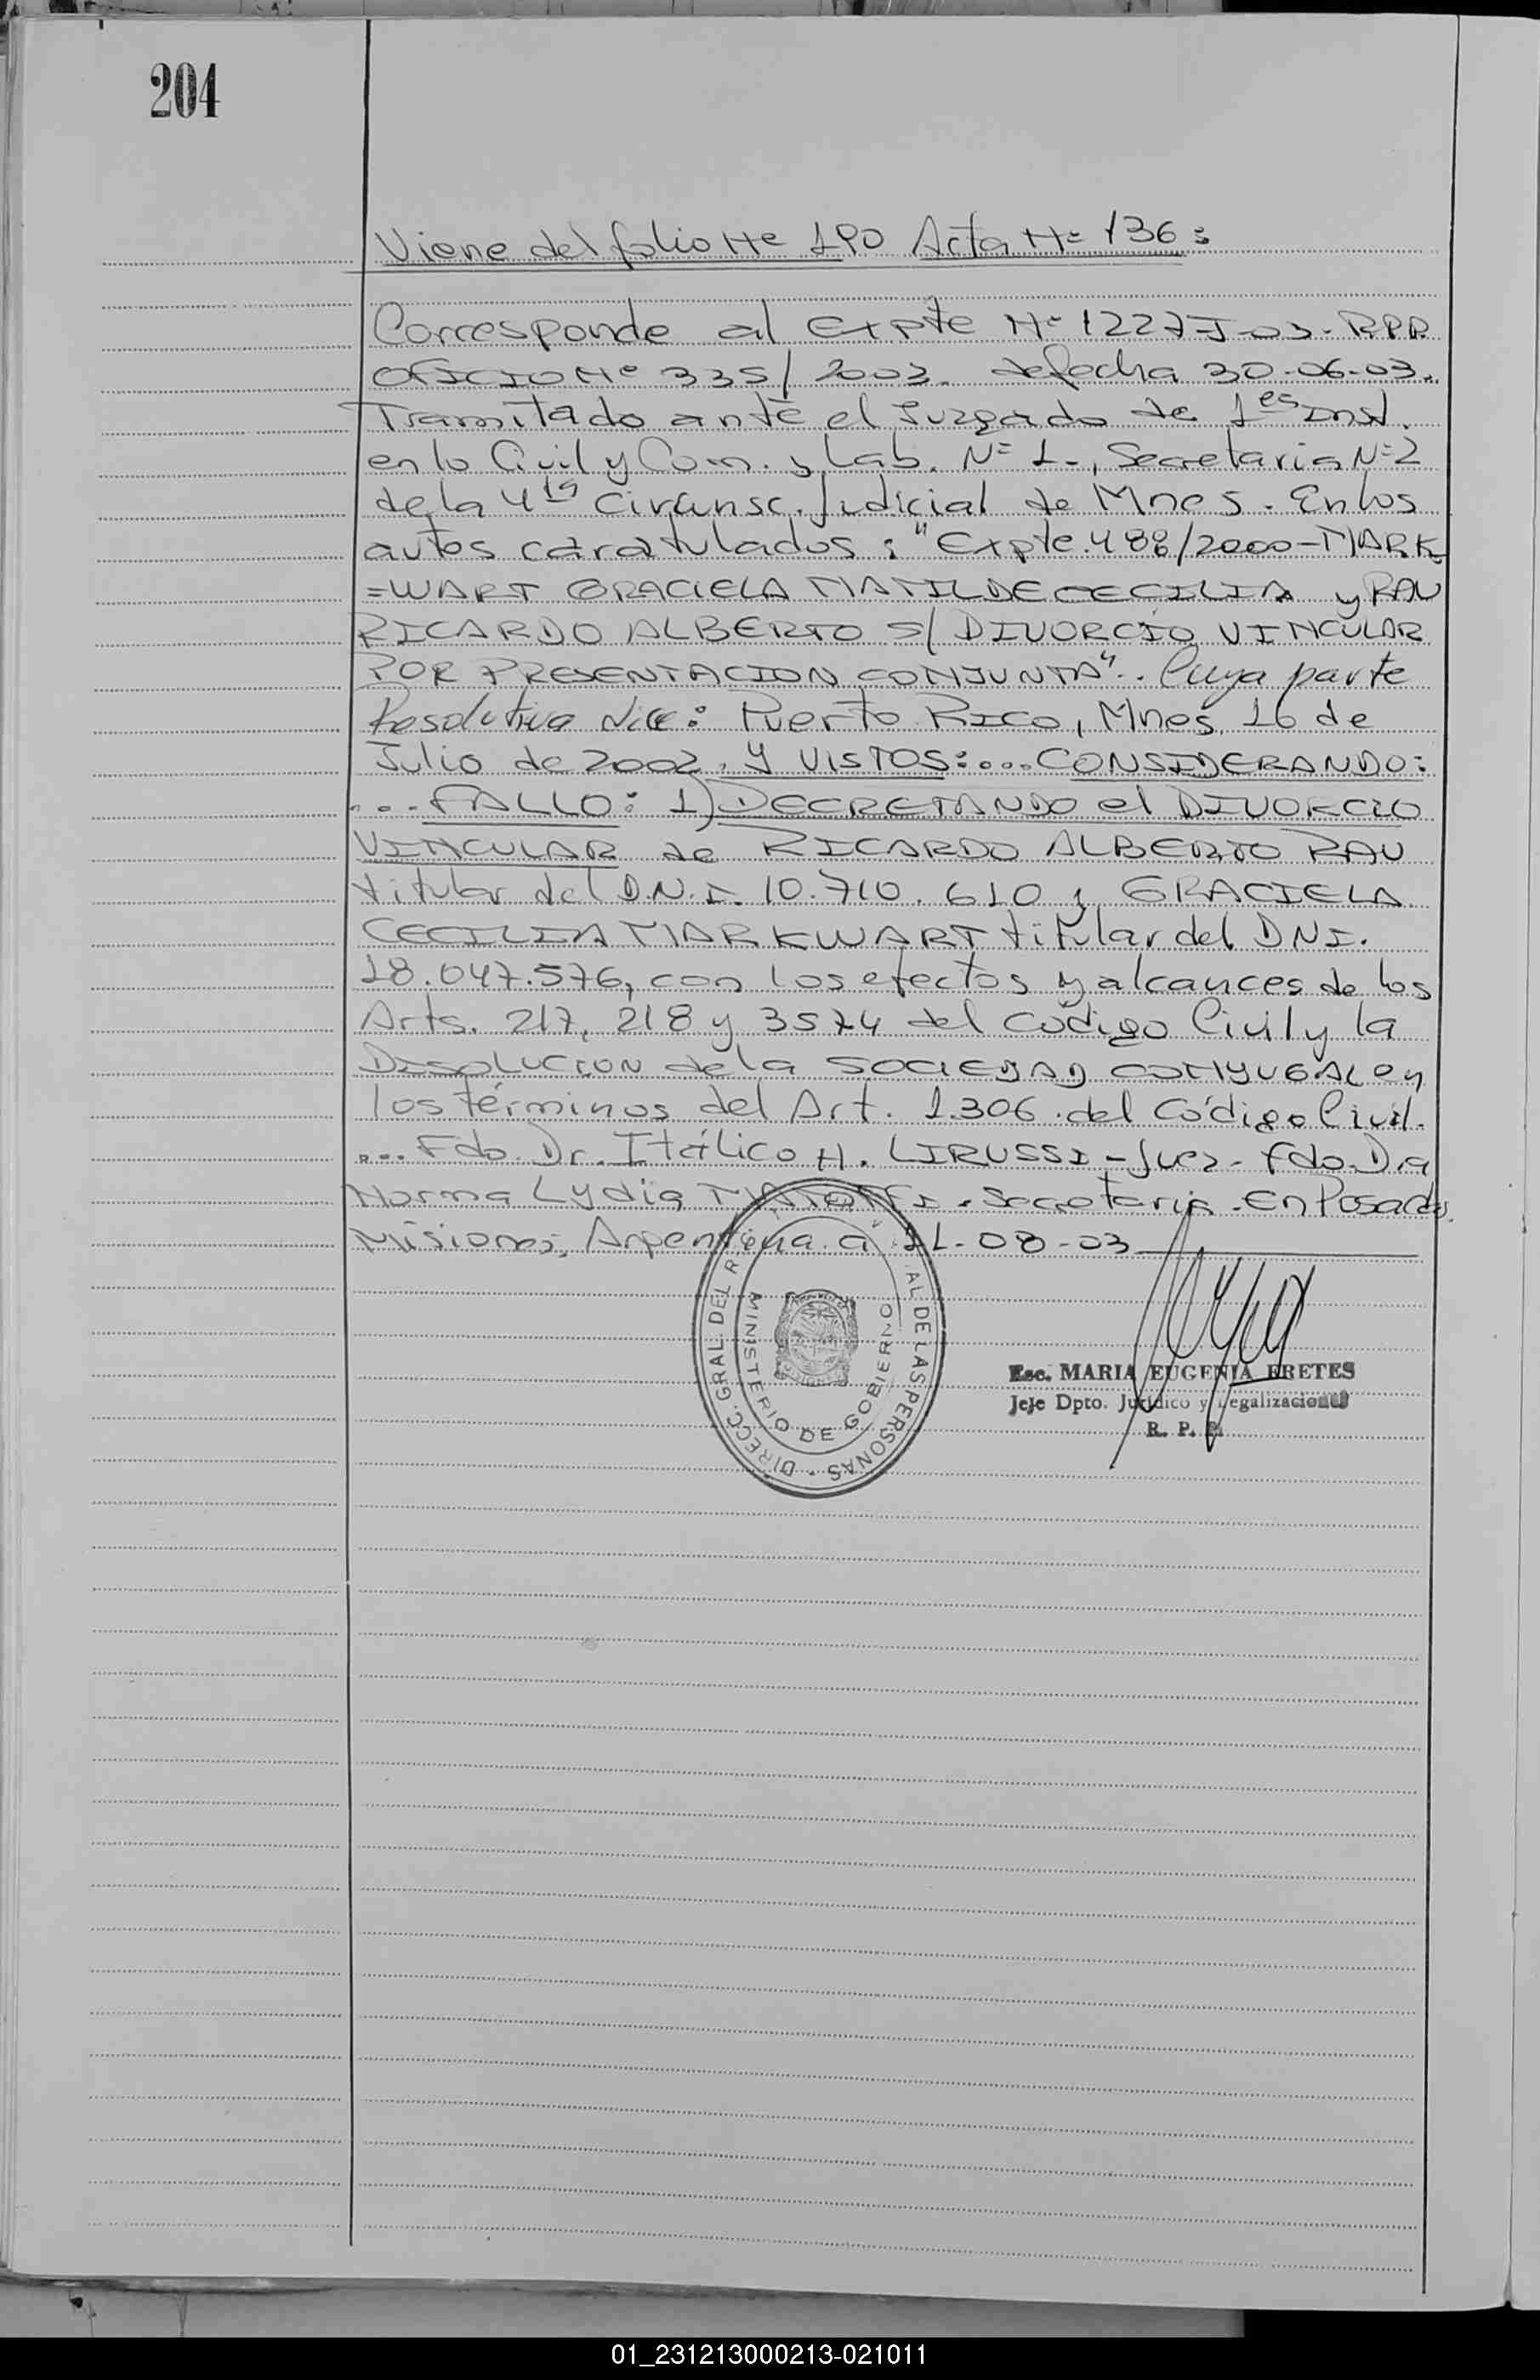 204
Viene del folio Nº 190 Acta Nº 136:
Corresponde al Expte Nº 1227-J-03-RPP.
OFICIO Nº 335/2003. de fecha 30-06-03.
Tramitado ante el Juzgado de 1es Inst.
en lo Civil y Com. y Lab. Nº 1-, Secretaria Nº 2
de la 4ta Circunsc. Judicial de Mnes. En los
autos caratulados: "Expte. 488/2000-MARK
=WART GRACIELA MATILDE CECILIA y RAU
RICARDO ALBERTO S/ DIVORCIO VINCULAR
POR PRESENTACION CONJUNTA".. Cuya parte
Resolutiva dice: Puerto Rico, Mnes, 16 de
Julio de 2002. Y VISTOS:...CONSIDERANDO:
...FALLO: 1) DECRETANDO el DIVORCIO
VINCULAR de RICARDO ALBERTO RAU
titular del D.N.I. 10.710.610 y GRACIELA
CECILIA MARKWART titular del DNI.
18.047.576, con los efectos y alcances de los
Arts. 217, 218 y 3574 del Código Civil y la
DISOLUCION de la SOCIEDAD CONYUGAL en
los términos del Art. 1.306 del Código Civil.
... Fdo. Dr. Itálico H. LIRUSSI - Juez - Fdo. Dra
Norma Lydia - Secretaria - En Posadas,
Misiones, Argentina a 11-08-03
DIRECC. GRAL. DEL R AL DE LAS PERSONAS
MINISTERIO DE GOBIERNO
Esc. MARIA EUGENIA ERETES
Jefe Dpto. Jurídico y Legalizaciones
R. P. P.
01_231213000213-021011